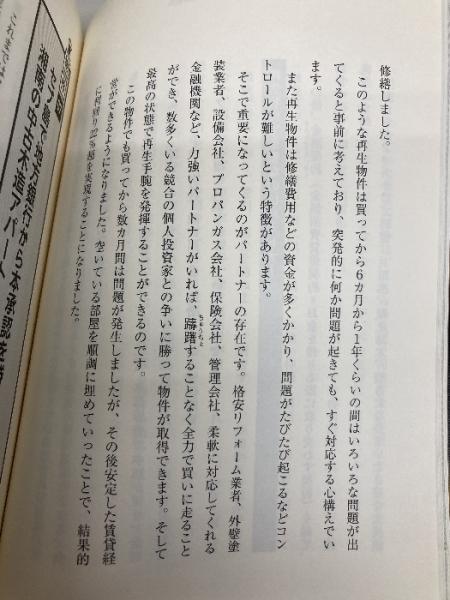 修繕しました。
このような再生物件は買ってから6カ月から1年くらいの間はいろいろな問題が出
てくると事前に考えており、突発的に何か問題が起きても、すぐ対応する心構えでい
ます。
また再生物件は修繕費用などの資金が多くかかり、問題がたびたび起こるなどコン
トロールが難しいという特徴があります。
そこで重要になってくるのがパートナーの存在です。格安リフォーム業者、外壁塗
装業者、設備会社、プロパンガス会社、保険会社、管理会社、柔軟に対応してくれる
金融機関など、力強いパートナーがいれば、躊躇することなく全力で買いに走ること
ができ、数多くいる競合の個人投資家との争いに勝って物件が取得できます。そして
最高の状態で再生手腕を発揮することができるのです。
この物件でも買ってから数カ月間は問題が発生しましたが、その後安定した賃貸経
営ができるようになりました。空いている部屋を順調に埋めていったことで、結果的
に利回り22％超を実現することになりました。
地方銀行から本承認を
湘南の中古木造アパート
これまでは